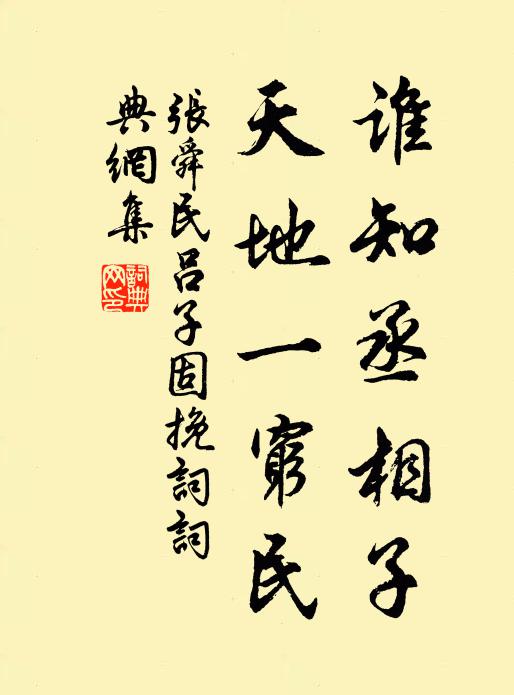 誰知丞相子
天地一窮民
張舜民呂子固挽詞詞
典網集
詞典
网印